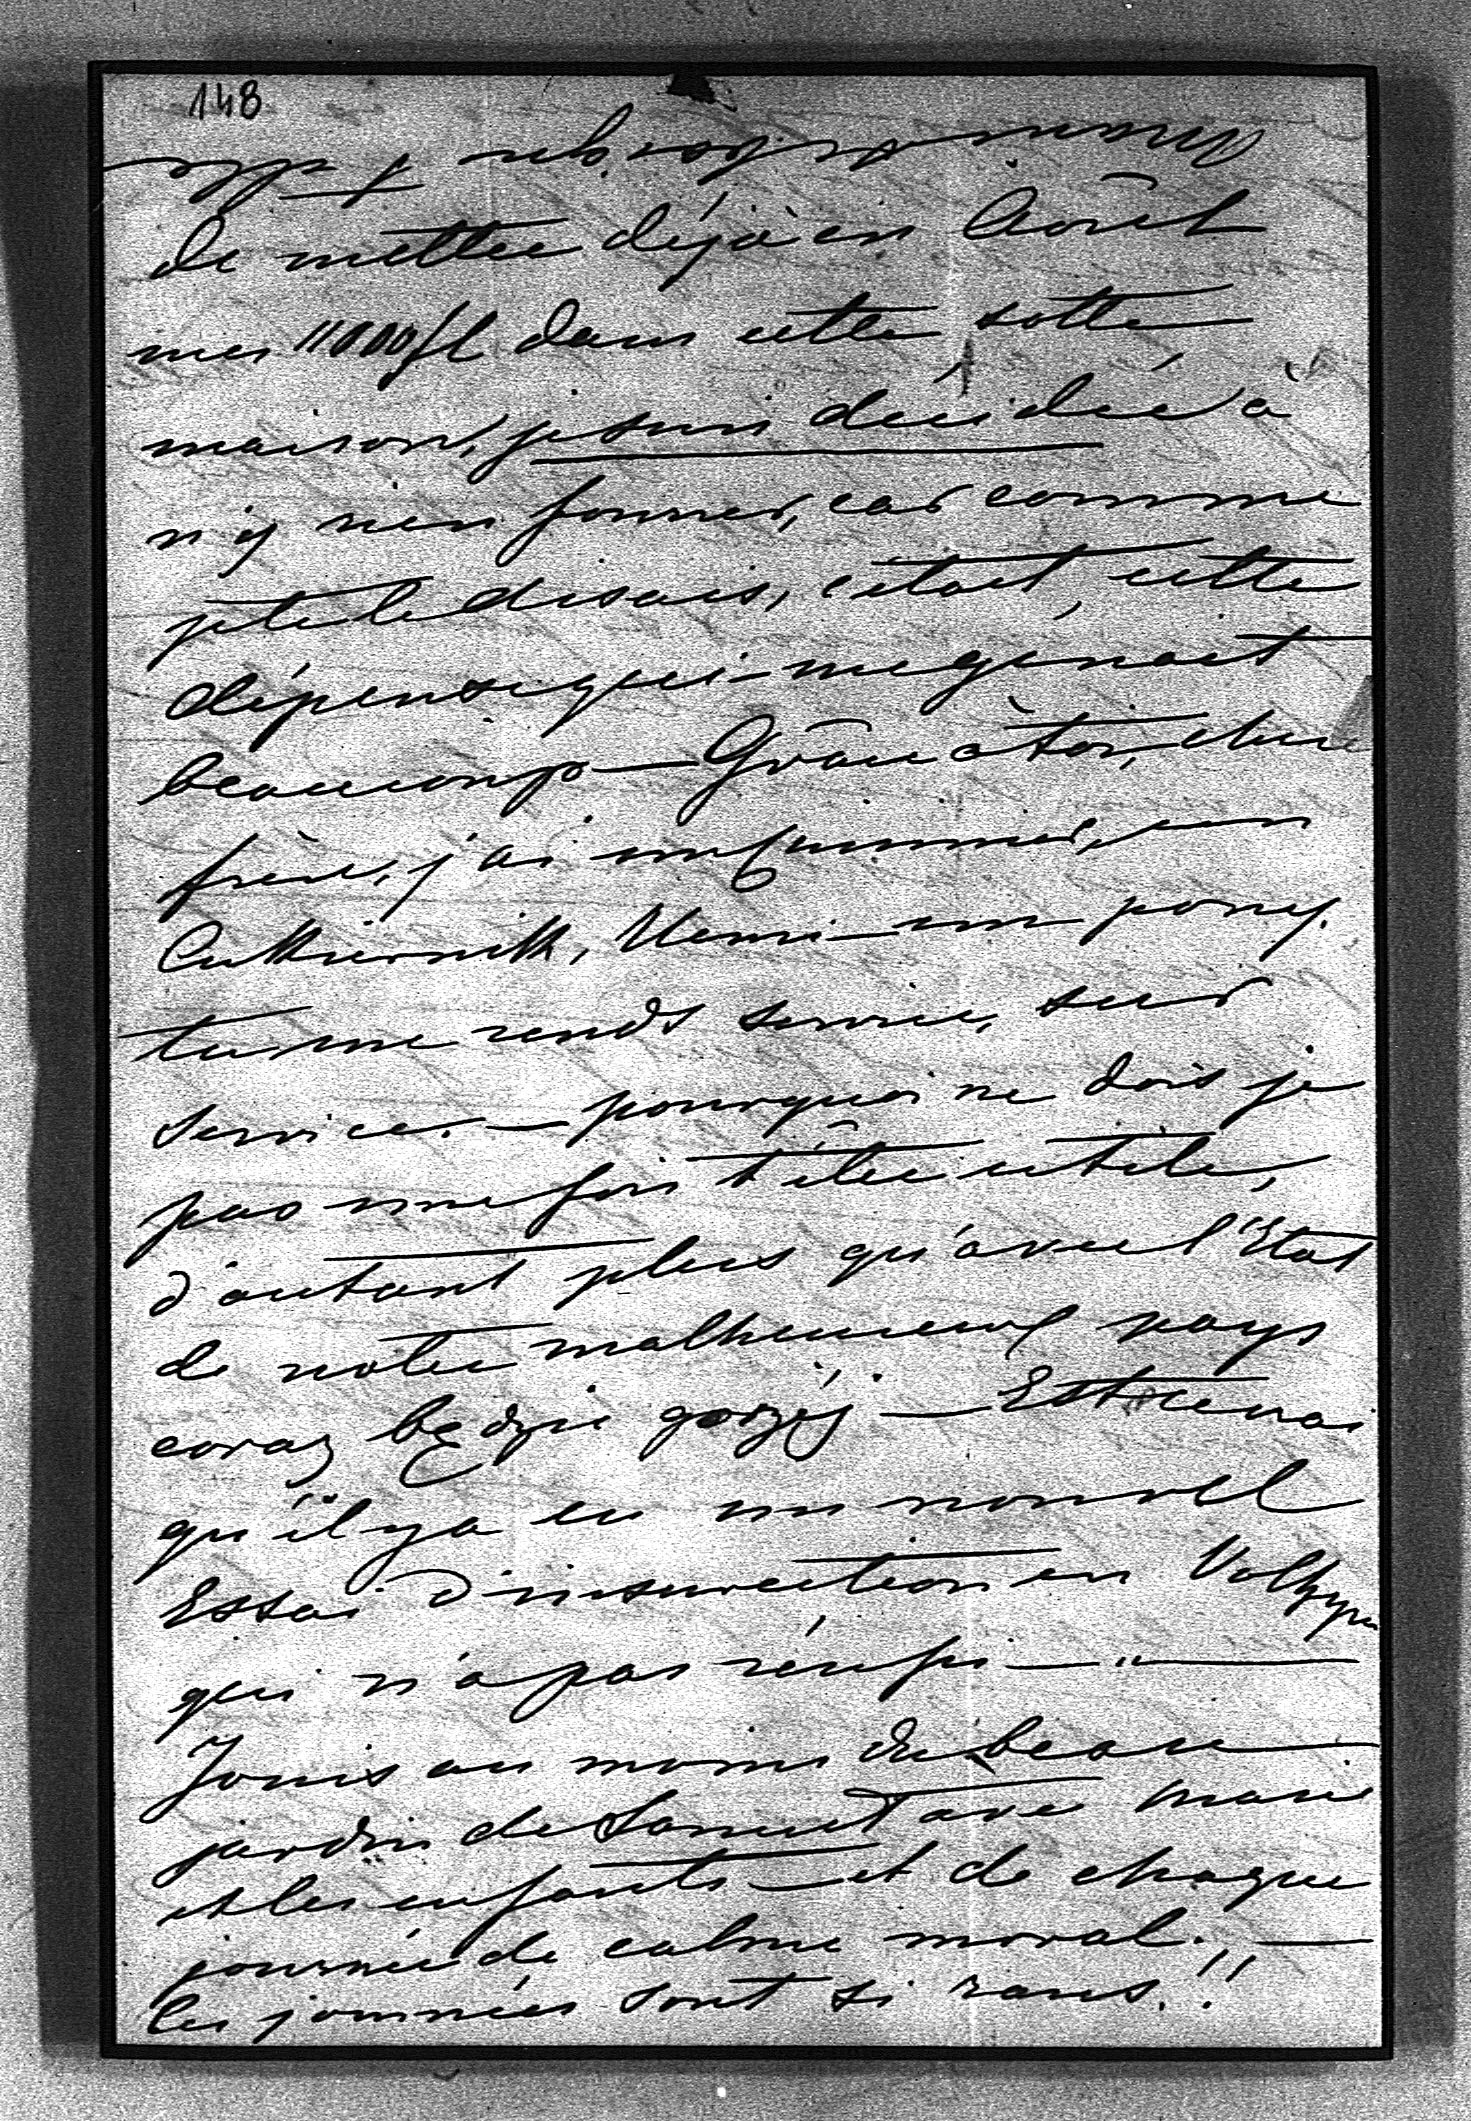 148
de mettre déjà en Août
mes 11000 fl dans cette sotte
maison, je suis décidée à
n'y rien fourrer, car comme
je te le disais, c'était, cette
dépense qui me gênait
beaucoup — Grâce à toi, cher
frère, j'ai un un
Cukiernik, Henri — un poney.
tu me rends service, sur
service. — pourquoi ne dois je
pas une fois t'être utile,
d'autant plus qu'avec l'Etat
de notre malheureux pays
coraz będzie gorzéj — Est ce vrai
qu'il y a eu un nouvel
Essai d'insurection en Volhynie
qui n'a pas réussi — " —
Jouis au moins du beau
jardin de Łancut avec Marie
et les enfants — et de chaque
journée de calme moral. —
les journées sont si rares.!!